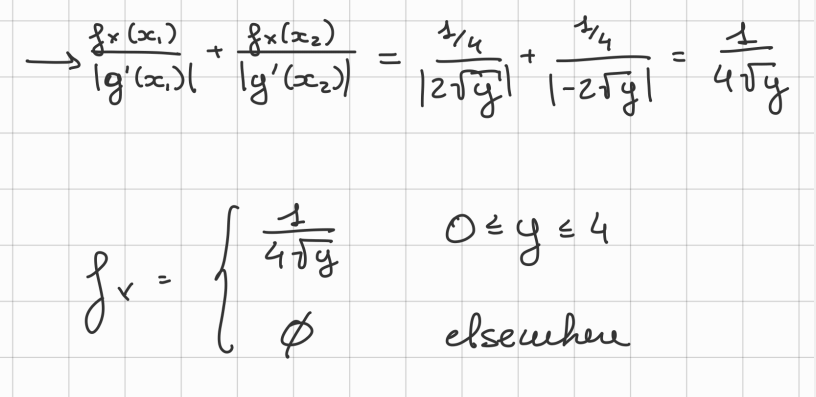 → fx(x₁)/|g'(x₁)| + fx(x₂)/|g'(x₂)| = 1/4/|2√y| + 1/4/|-2√y| = 1/4√y
fY = { 1/4√y 0 ≤ y ≤ 4
∅ elsewhere